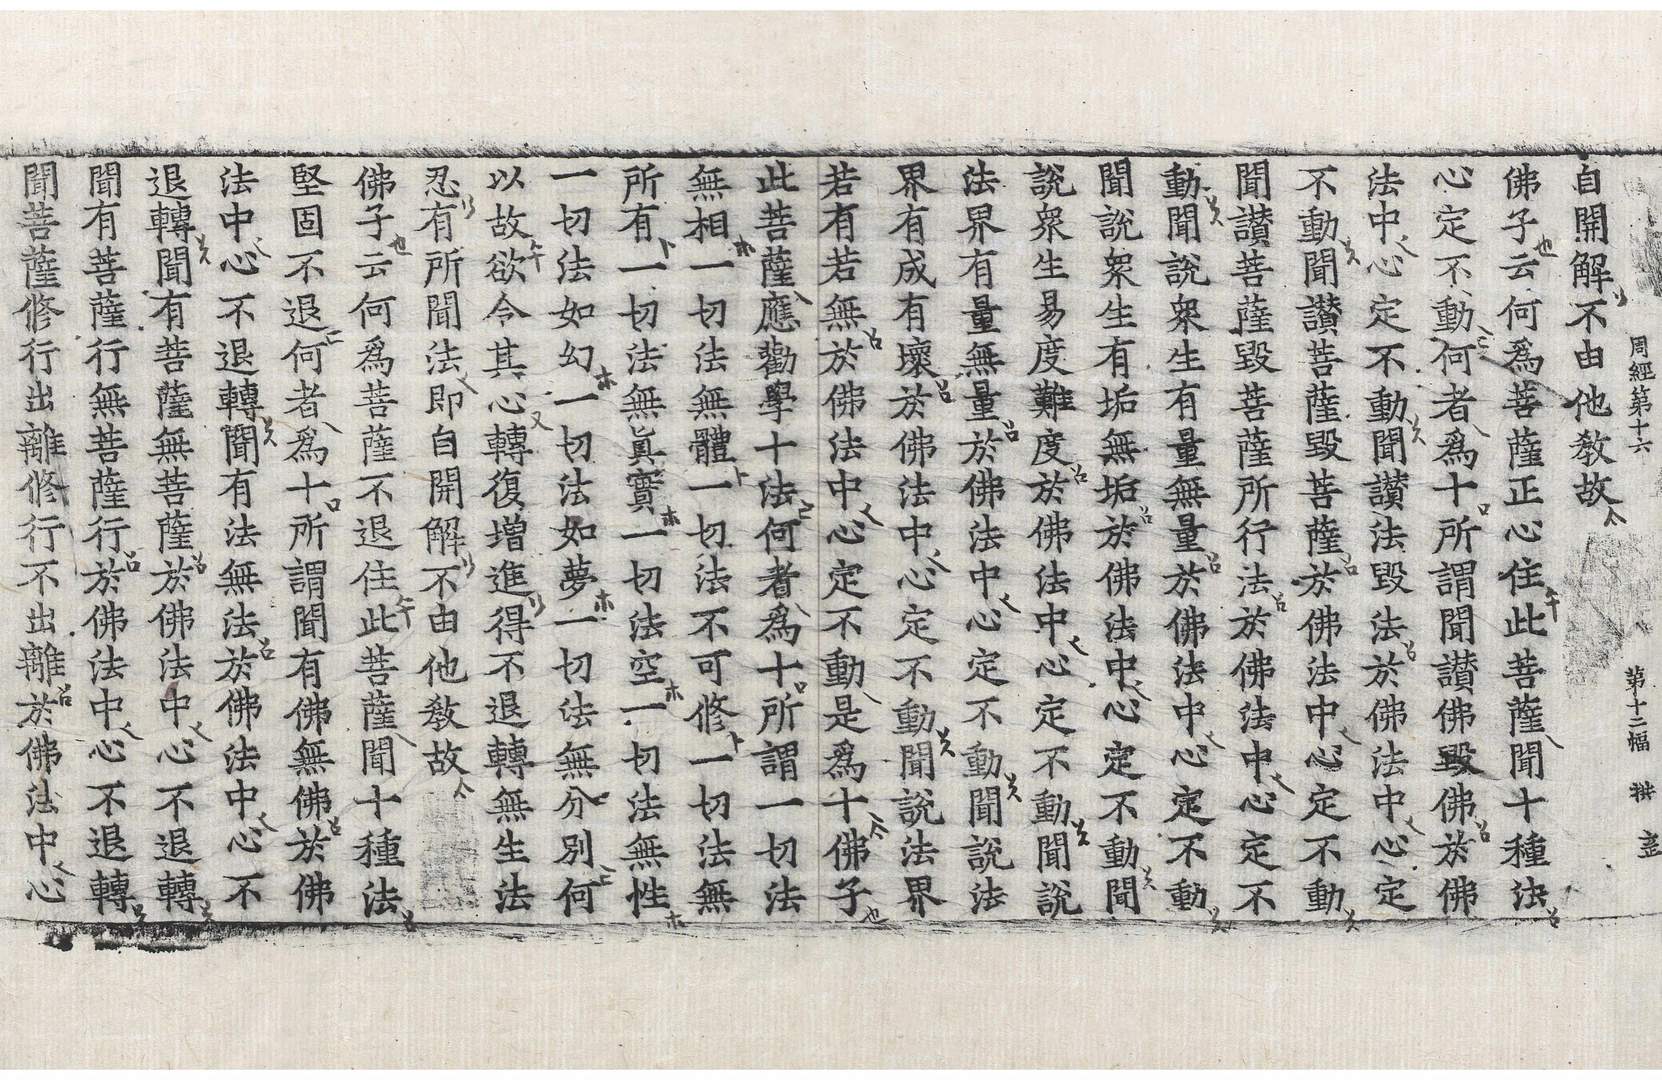 周經第十六 第十二幅
自開解不由他教故
佛子云何爲菩薩正心住此菩薩聞十種法
心定不動何者爲十所謂聞讃佛毀佛於佛
法中心定不動聞讃法毀法於佛法中心定
不動聞讃菩薩毀菩薩於佛法中心定不動
聞讃菩薩毀菩薩所行法於佛法中心定不
動聞說衆生有量無量於佛法中心定不動
聞說衆生有垢無垢於佛法中心定不動聞
說衆生易度難度於佛法中心定不動聞說
法界有量無量於佛法中心定不動聞說法
界有成有壞於佛法中心定不動聞說法界
若有若無於佛法中心定不動是爲十佛子
此菩薩應勸學十法何者爲十所謂一切法
無相一切法無體一切法不可修一切法無
所有一切法無眞實一切法空一切法無性
一切法如幻一切法如夢一切法無分別何
以故欲令其心轉復增進得不退轉無生法
忍有所聞法即自開解不由他教故
佛子云何爲菩薩不退住此菩薩聞十種法
堅固不退何者爲十所謂聞有佛無佛於佛
法中心不退轉聞有法無法於佛法中心不
退轉聞有菩薩無菩薩於佛法中心不退轉
聞有菩薩行無菩薩行於佛法中心不退轉
聞菩薩修行出離修行不出離於佛法中心